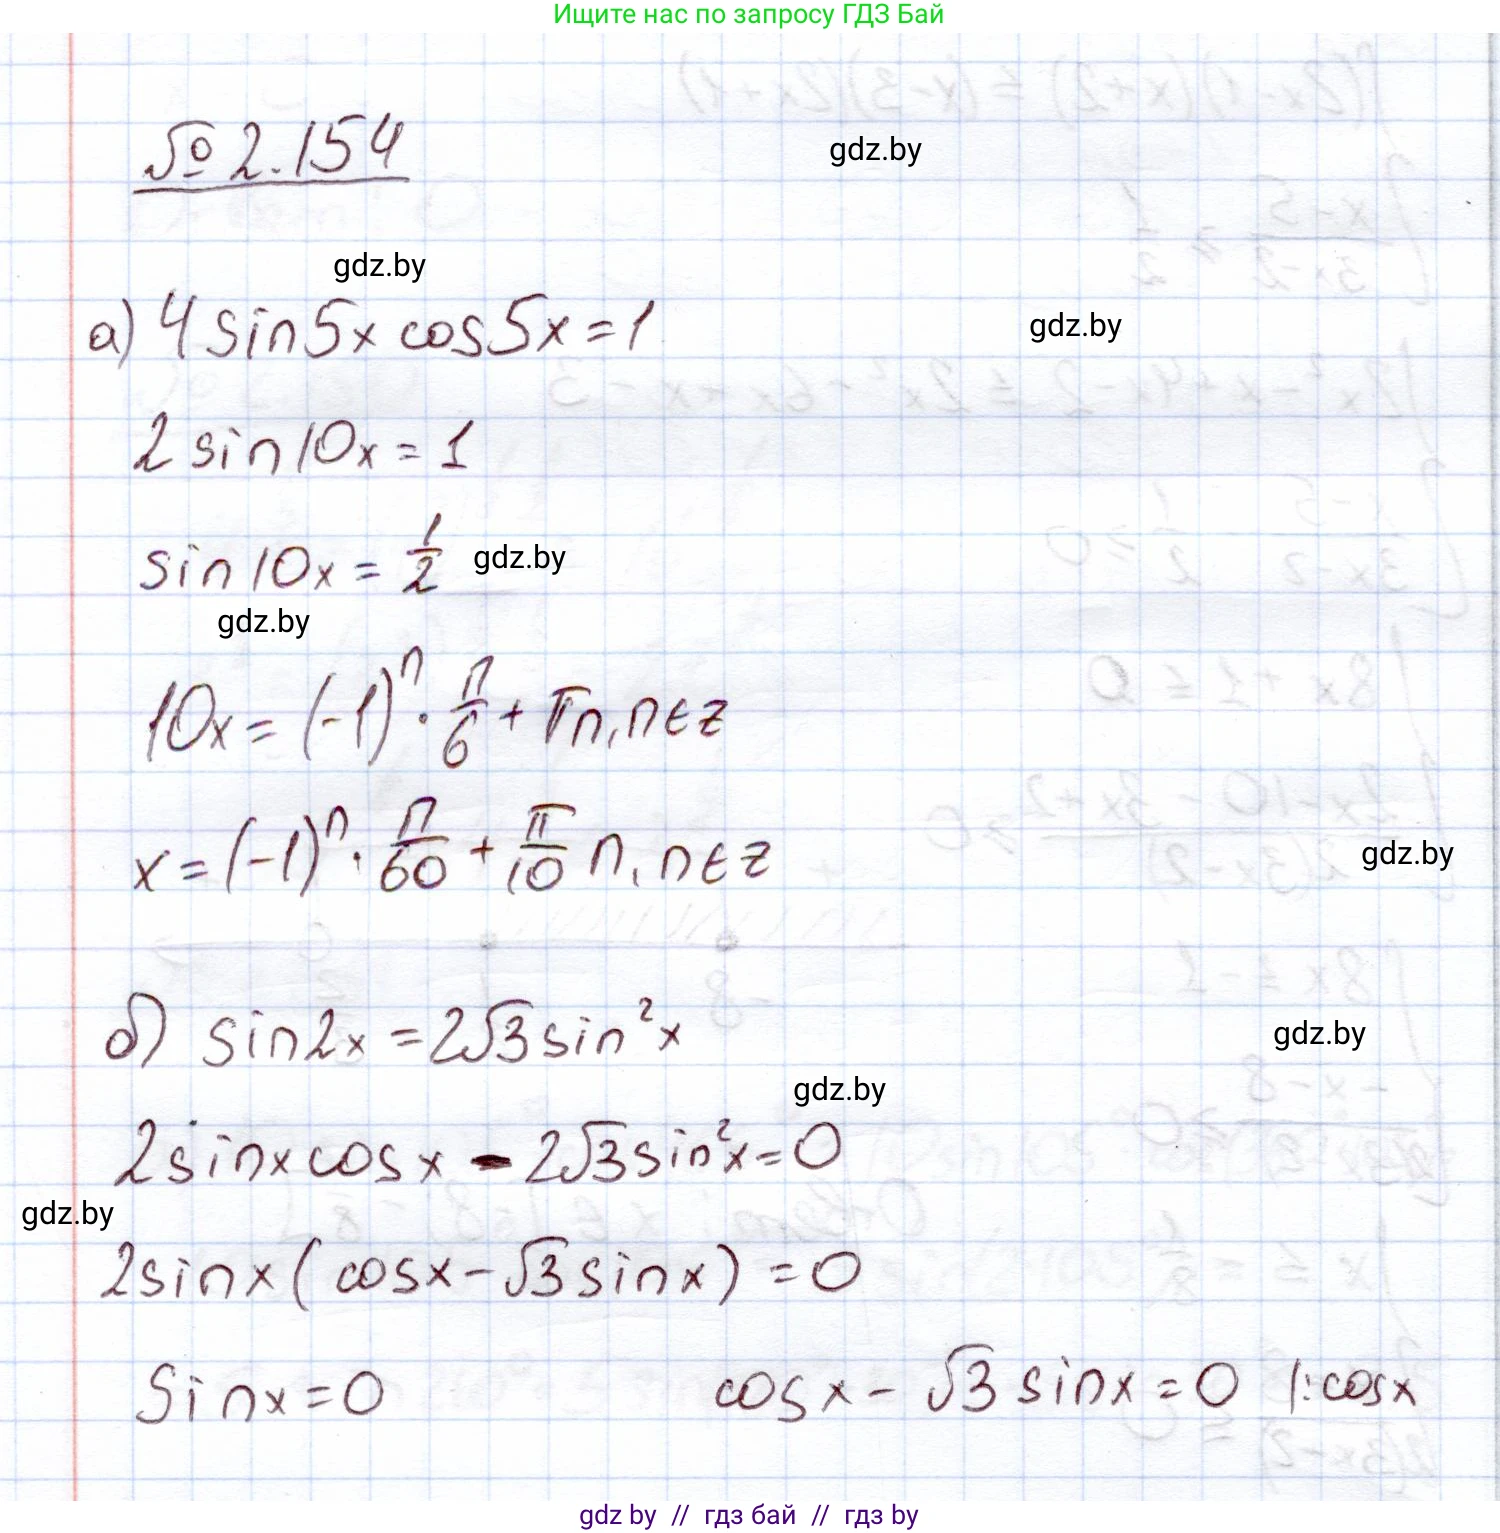 Ищите нас по запросу ГДЗ Бай
№ 2.154
gdz.by
gdz.by
а) 4 sin5x cos5x = 1
gdz.by
2 sin10x = 1
sin10x = 1/2
gdz.by
gdz.by
10x = (-1)^n · π/6 + πn, n∈z
x = (-1)^n · π/60 + π/10 n, n∈z
gdz.by
б) sin2x = 2√3 sin²x
gdz.by
gdz.by
2sinxcosx - 2√3 sin²x = 0
gdz.by
2sinx(cosx - √3 sinx) = 0
sinx = 0 cosx - √3 sinx = 0 |:cosx
gdz by // гдз бай // гдз by